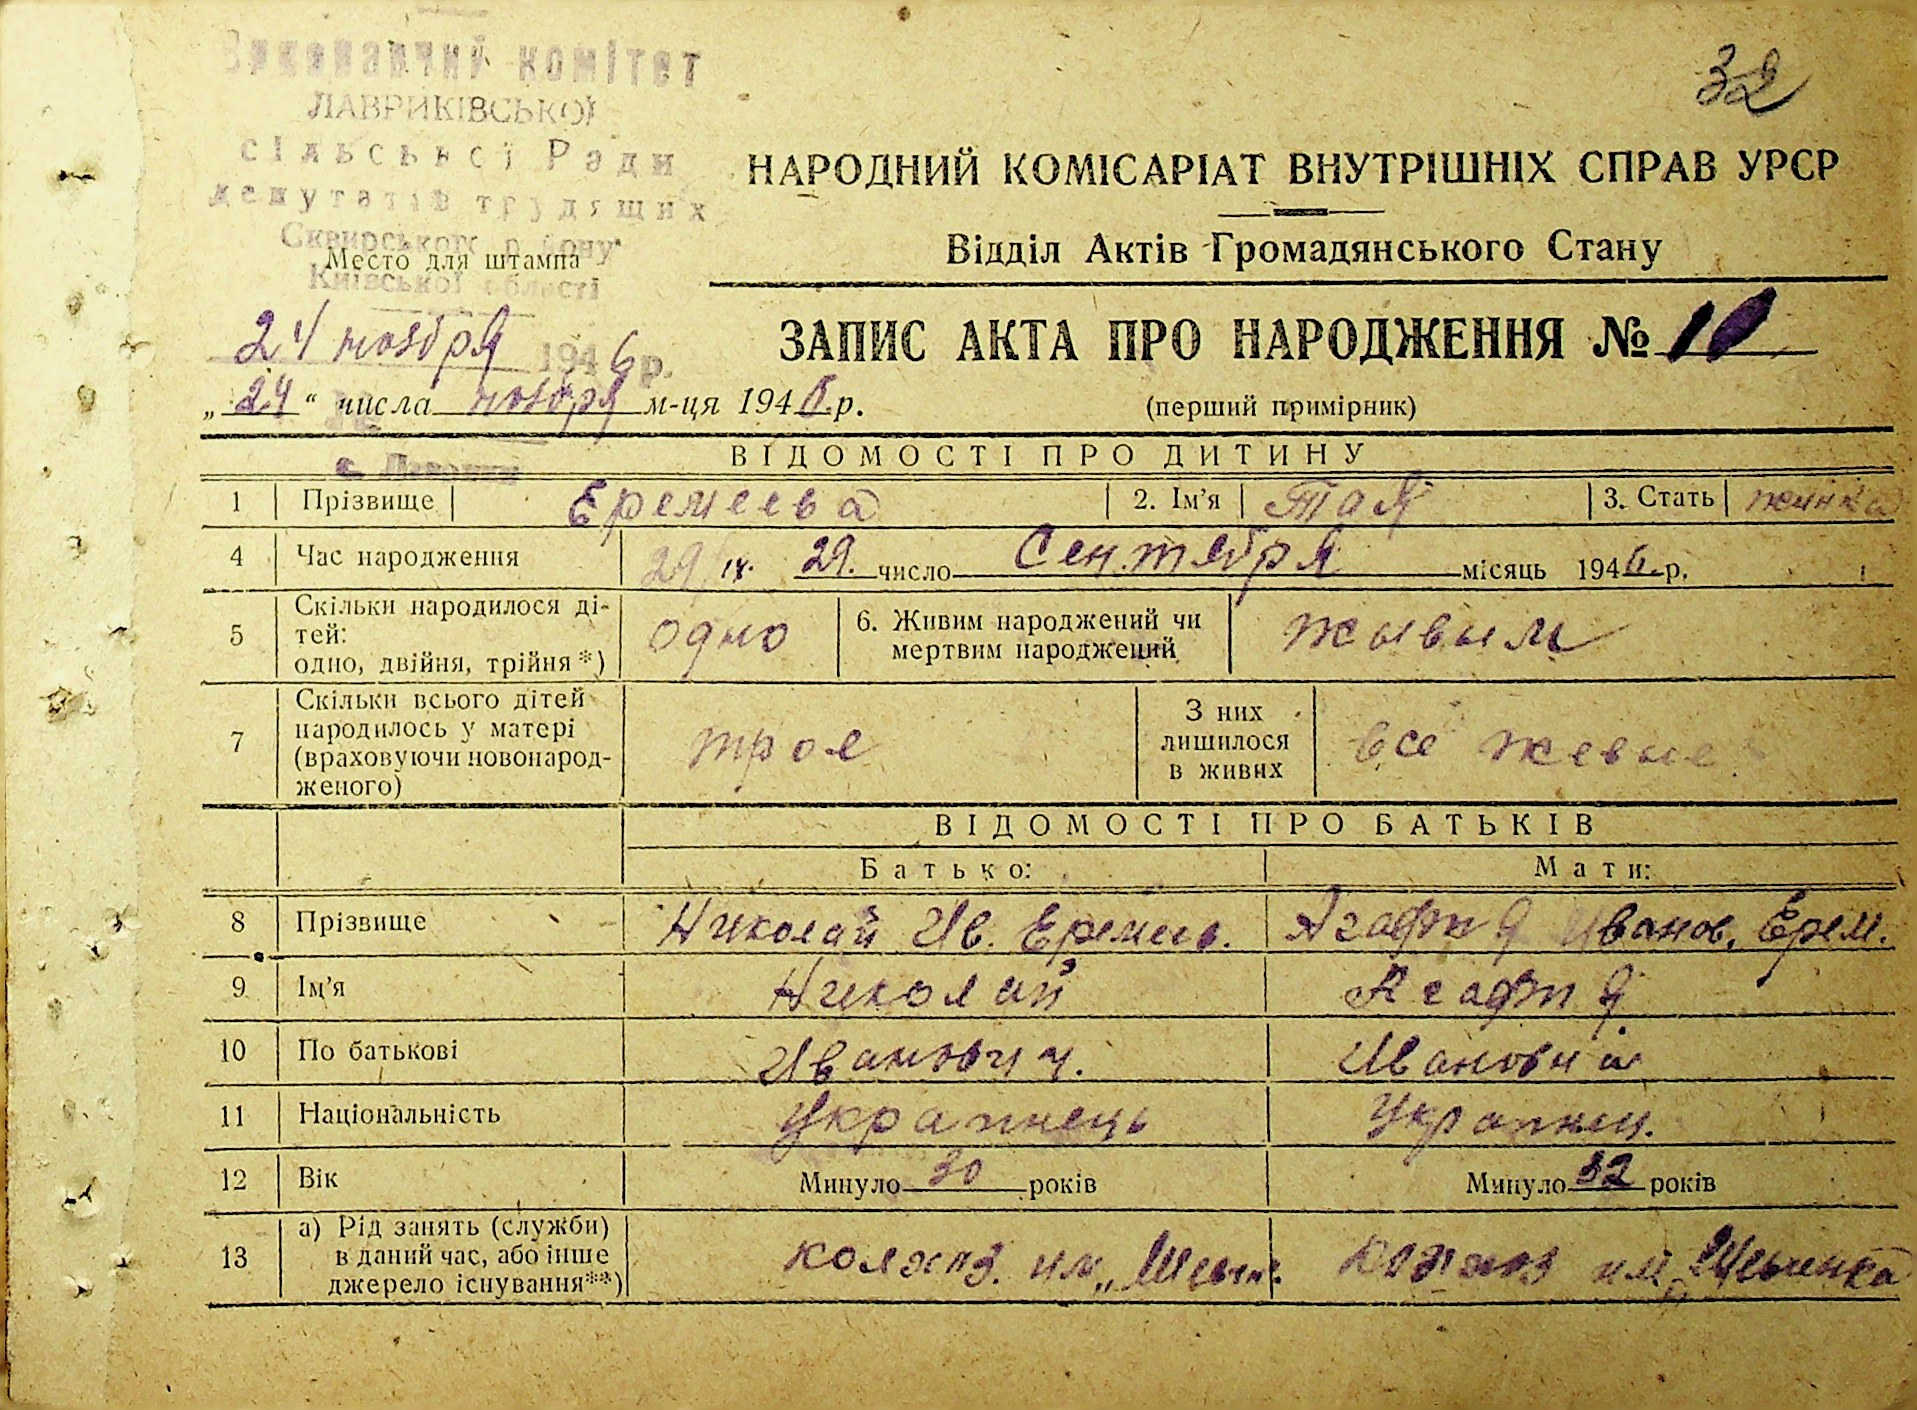 32
Виконавчий комітет
ЛАВРИКІВСЬКОЇ
сільської Ради
депутатів трудящих
Сквирського району
Київської області
Место для штампа
НАРОДНИЙ КОМІСАРІАТ ВНУТРІШНІХ СПРАВ УРСР
Відділ Актів Громадянського Стану
24 ноября 1946 р.
ЗАПИС АКТА ПРО НАРОДЖЕННЯ № 10
„ 24 “ числа ноября м-ця 1946 р.
(перший примірник)
ВІДОМОСТІ ПРО ДИТИНУ
1 Прізвище Еремеева 2. Ім’я Тая 3. Стать жінка
4 Час народження 29/ІХ. 29. число Сентября місяць 1946. р.
5 Скільки народилося ді-
тей:
одно, двійня, трійня*) одно 6. Живим народжений чи
мертвим народжений жывым
7 Скільки всього дітей
народилось у матері
(враховуючи новонарод-
женого) трое З них
лишилося
в живих все жевые
ВІДОМОСТІ ПРО БАТЬКІВ
Батько: Мати:
8 Прізвище Николай Ив. Еремеев. Агафия Иванов. Ерем.
9 Ім’я Николай Агафия
10 По батькові Иванович. Ивановна
11 Національність Украинець Украинец.
12 Вік Минуло 30 років Минуло 32 років
13 а) Рід занять (служби)
в даний час, або інше
джерело існування**) колхоз. им. колхоз им.